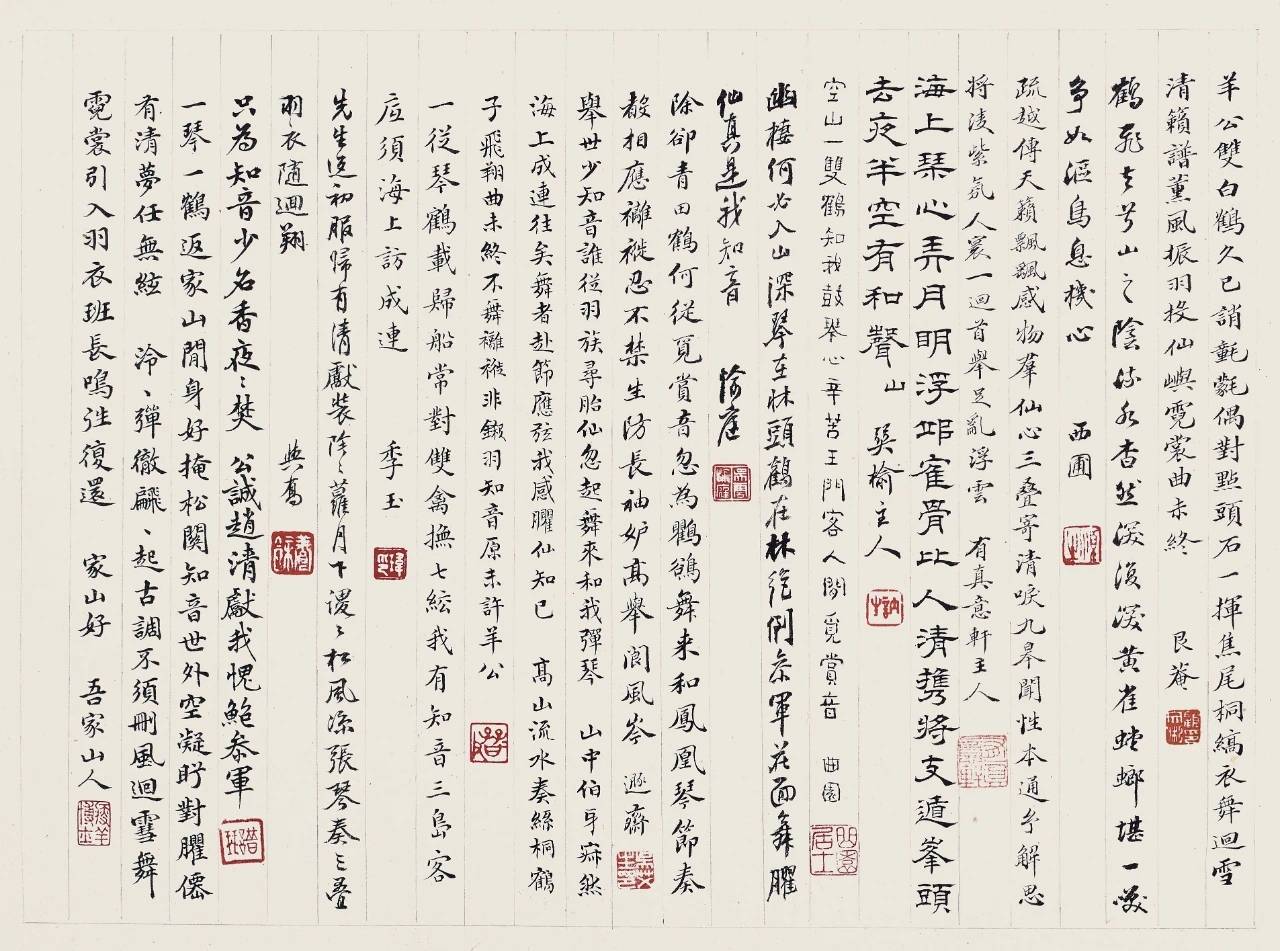 羊公雙白鶴久已誚氃氋偶對點頭石一揮焦尾桐縞衣舞迴雪
清籟譜薰風振羽投仙嶼霓裳曲未終　艮菴
鶴飛去兮山之陰流水杳然深復深黃雀螳螂堪一嘆
爭如漚鳥息機心　西圃
疏越傳天籟飄飄感物羣仙心三叠寄清唳九皋聞性本通兮解思
將淩紫氛人寰一迴首舉足亂浮雲　有真意軒主人
海上琹心弄月明浮邱隺骨比人清攜將支遁峯頭
去夜半空有和聲　吳榆主人
空山一雙鶴知我鼓琴心辛苦王門客人間覓賞音　曲園
幽棲何必入山深琴在牀頭鶴在林絕倒參軍莊面舞臞
仙真是我知音　愉庭
除卻青田鶴何從覓賞音忽為鸜鵒舞来和鳳凰琴節奏
殽相應褵褷忍不禁生防長袖妒高舉閬風岑　遯齋
舉世少知音誰從羽族尋胎仙忽起舞來和我彈琴　山中伯牙寂然
海上成連往矣舞者赴節應弦我感臞仙知已　高山流水奏絲桐鶴
子飛翔曲未終不舞褵褷非鎩羽知音原未許羊公
一從琴鶴載歸船常對雙禽撫七絃我有知音三島客
底須海上訪成連　季玉
先生返初服歸有清獻裝陰〻蘿月下謖〻松風涼張琴奏三疊
羽衣隨迴翔　典喬
只為知音少名香夜〻焚　公誠趙清獻我愧鮑參軍
一琴一鶴返家山閒身好掩松關知音世外空凝盻對臞僊
有清夢任無絃　泠〻彈徹翩〻起古調不須刪風迴雪舞
霓裳引入羽衣班長鳴往復還　家山好　吾家山人